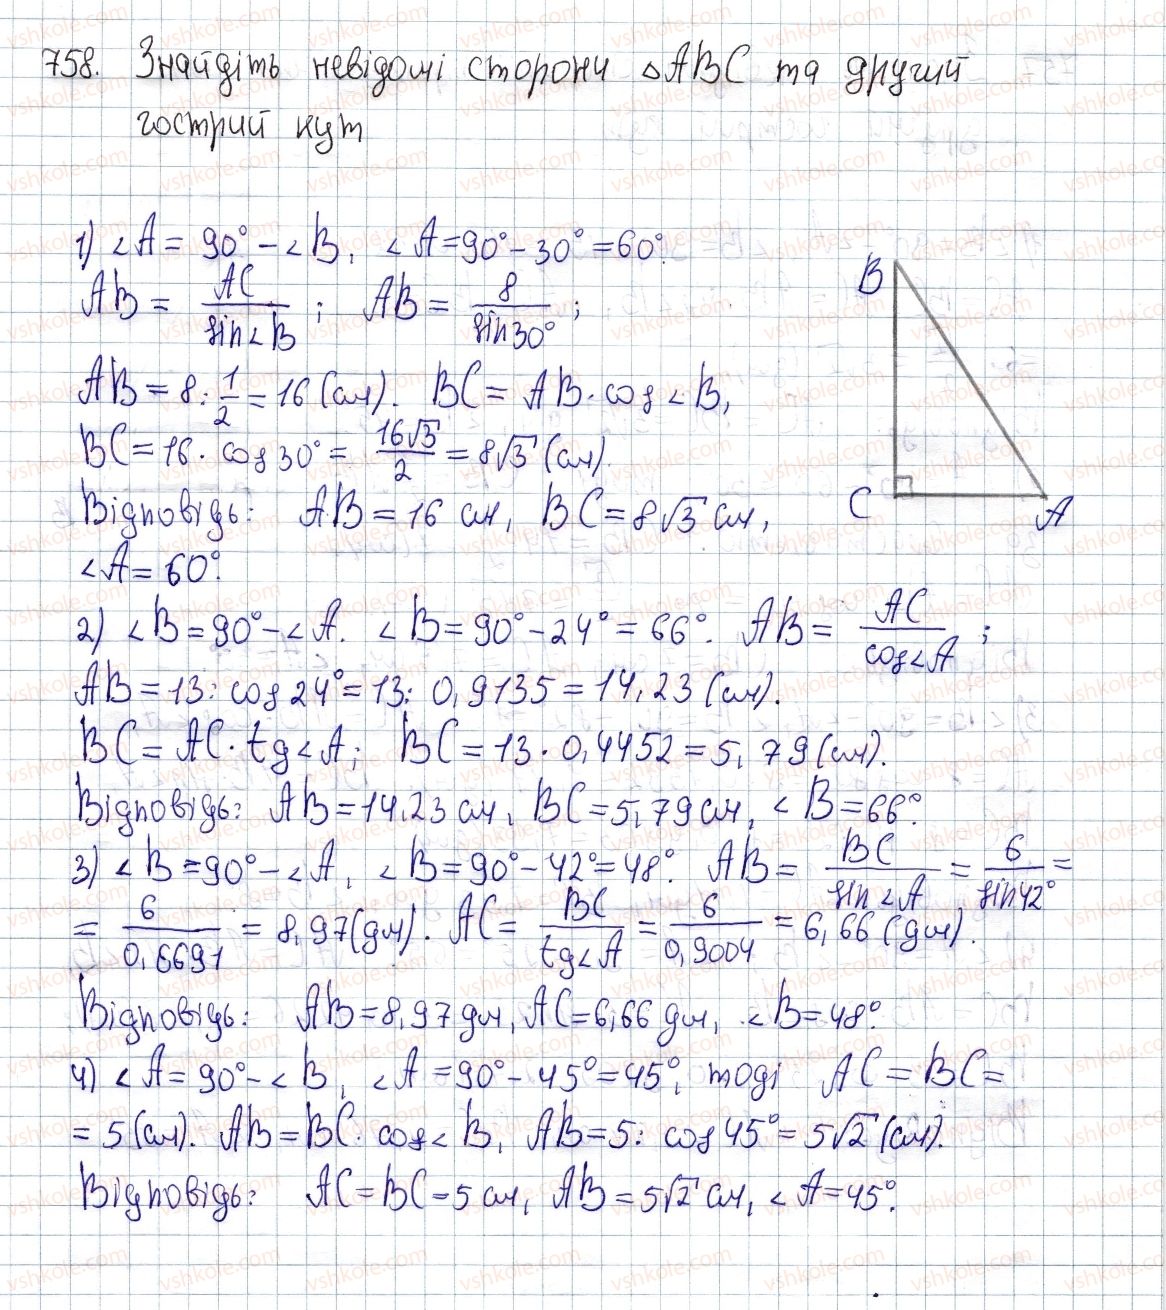 758. Знайдіть невідомі сторони △ABC та другий
гострий кут
1) ∠A = 90° - ∠B, ∠A = 90° - 30° = 60°.
AB = AC/sin∠B; AB = 8/sin30°;
AB = 8 : 1/2 = 16 (см). BC = AB · cos∠B,
BC = 16 · cos30° = 16√3/2 = 8√3 (см).
Відповідь: AB = 16 см, BC = 8√3 см,
∠A = 60°.
B
C
A
2) ∠B = 90° - ∠A. ∠B = 90° - 24° = 66°. AB = AC/cos∠A;
AB = 13 : cos24° = 13 : 0,9135 = 14,23 (см).
BC = AC · tg∠A; BC = 13 · 0,4452 = 5,79 (см).
Відповідь: AB = 14,23 см, BC = 5,79 см, ∠B = 66°.
3) ∠B = 90° - ∠A, ∠B = 90° - 42° = 48°. AB = BC/sin∠A = 6/sin42° =
= 6/0,6691 = 8,97 (дм). AC = BC/tg∠A = 6/0,9004 = 6,66 (дм).
Відповідь: AB = 8,97 дм, AC = 6,66 дм, ∠B = 48°.
4) ∠A = 90° - ∠B, ∠A = 90° - 45° = 45°, тоді AC = BC =
= 5 (см). AB = BC · cos∠B, AB = 5 : cos45° = 5√2 (см).
Відповідь: AC = BC = 5 см, AB = 5√2 см, ∠A = 45°.